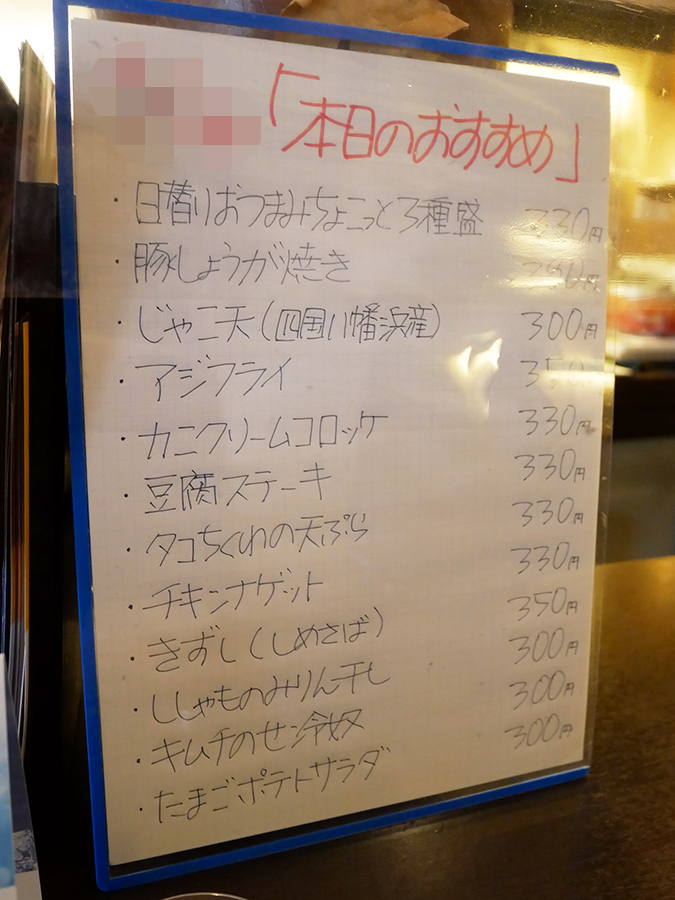 「本日のおすすめ」
・日替りおつまみちょこっと3種盛 330円
・豚しょうが焼き 円
・じゃこ天(四国八幡浜産) 300円
・アジフライ 350
・カニクリームコロッケ 330円
・豆腐ステーキ 330円
・タコちくわの天ぷら 330円
・チキンナゲット 330円
・きずし(しめさば) 350円
・ししゃものみりん干し 300円
・キムチのせ冷奴 300円
・たまごポテトサラダ 300円